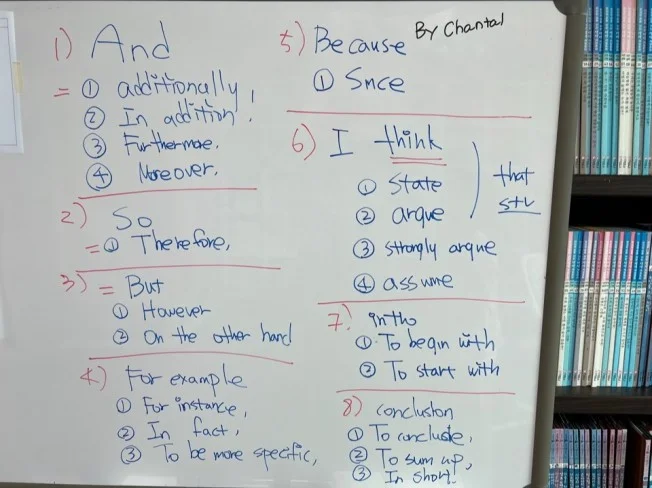 By Chantal
1) And
= ① additionally,
② In addition,
③ Furthermore,
④ Moreover,
2) So
= ① Therefore,
3) = But
① However
② On the other hand
4) For example
① For instance,
② In fact,
③ To be more specific,
5) Because
① Since
6) I think
① state
② argue
③ strongly argue
④ assume
that
S+V
7) intro
① To begin with
② To start with
8) conclusion
① To conclude,
② To sum up,
③ In short